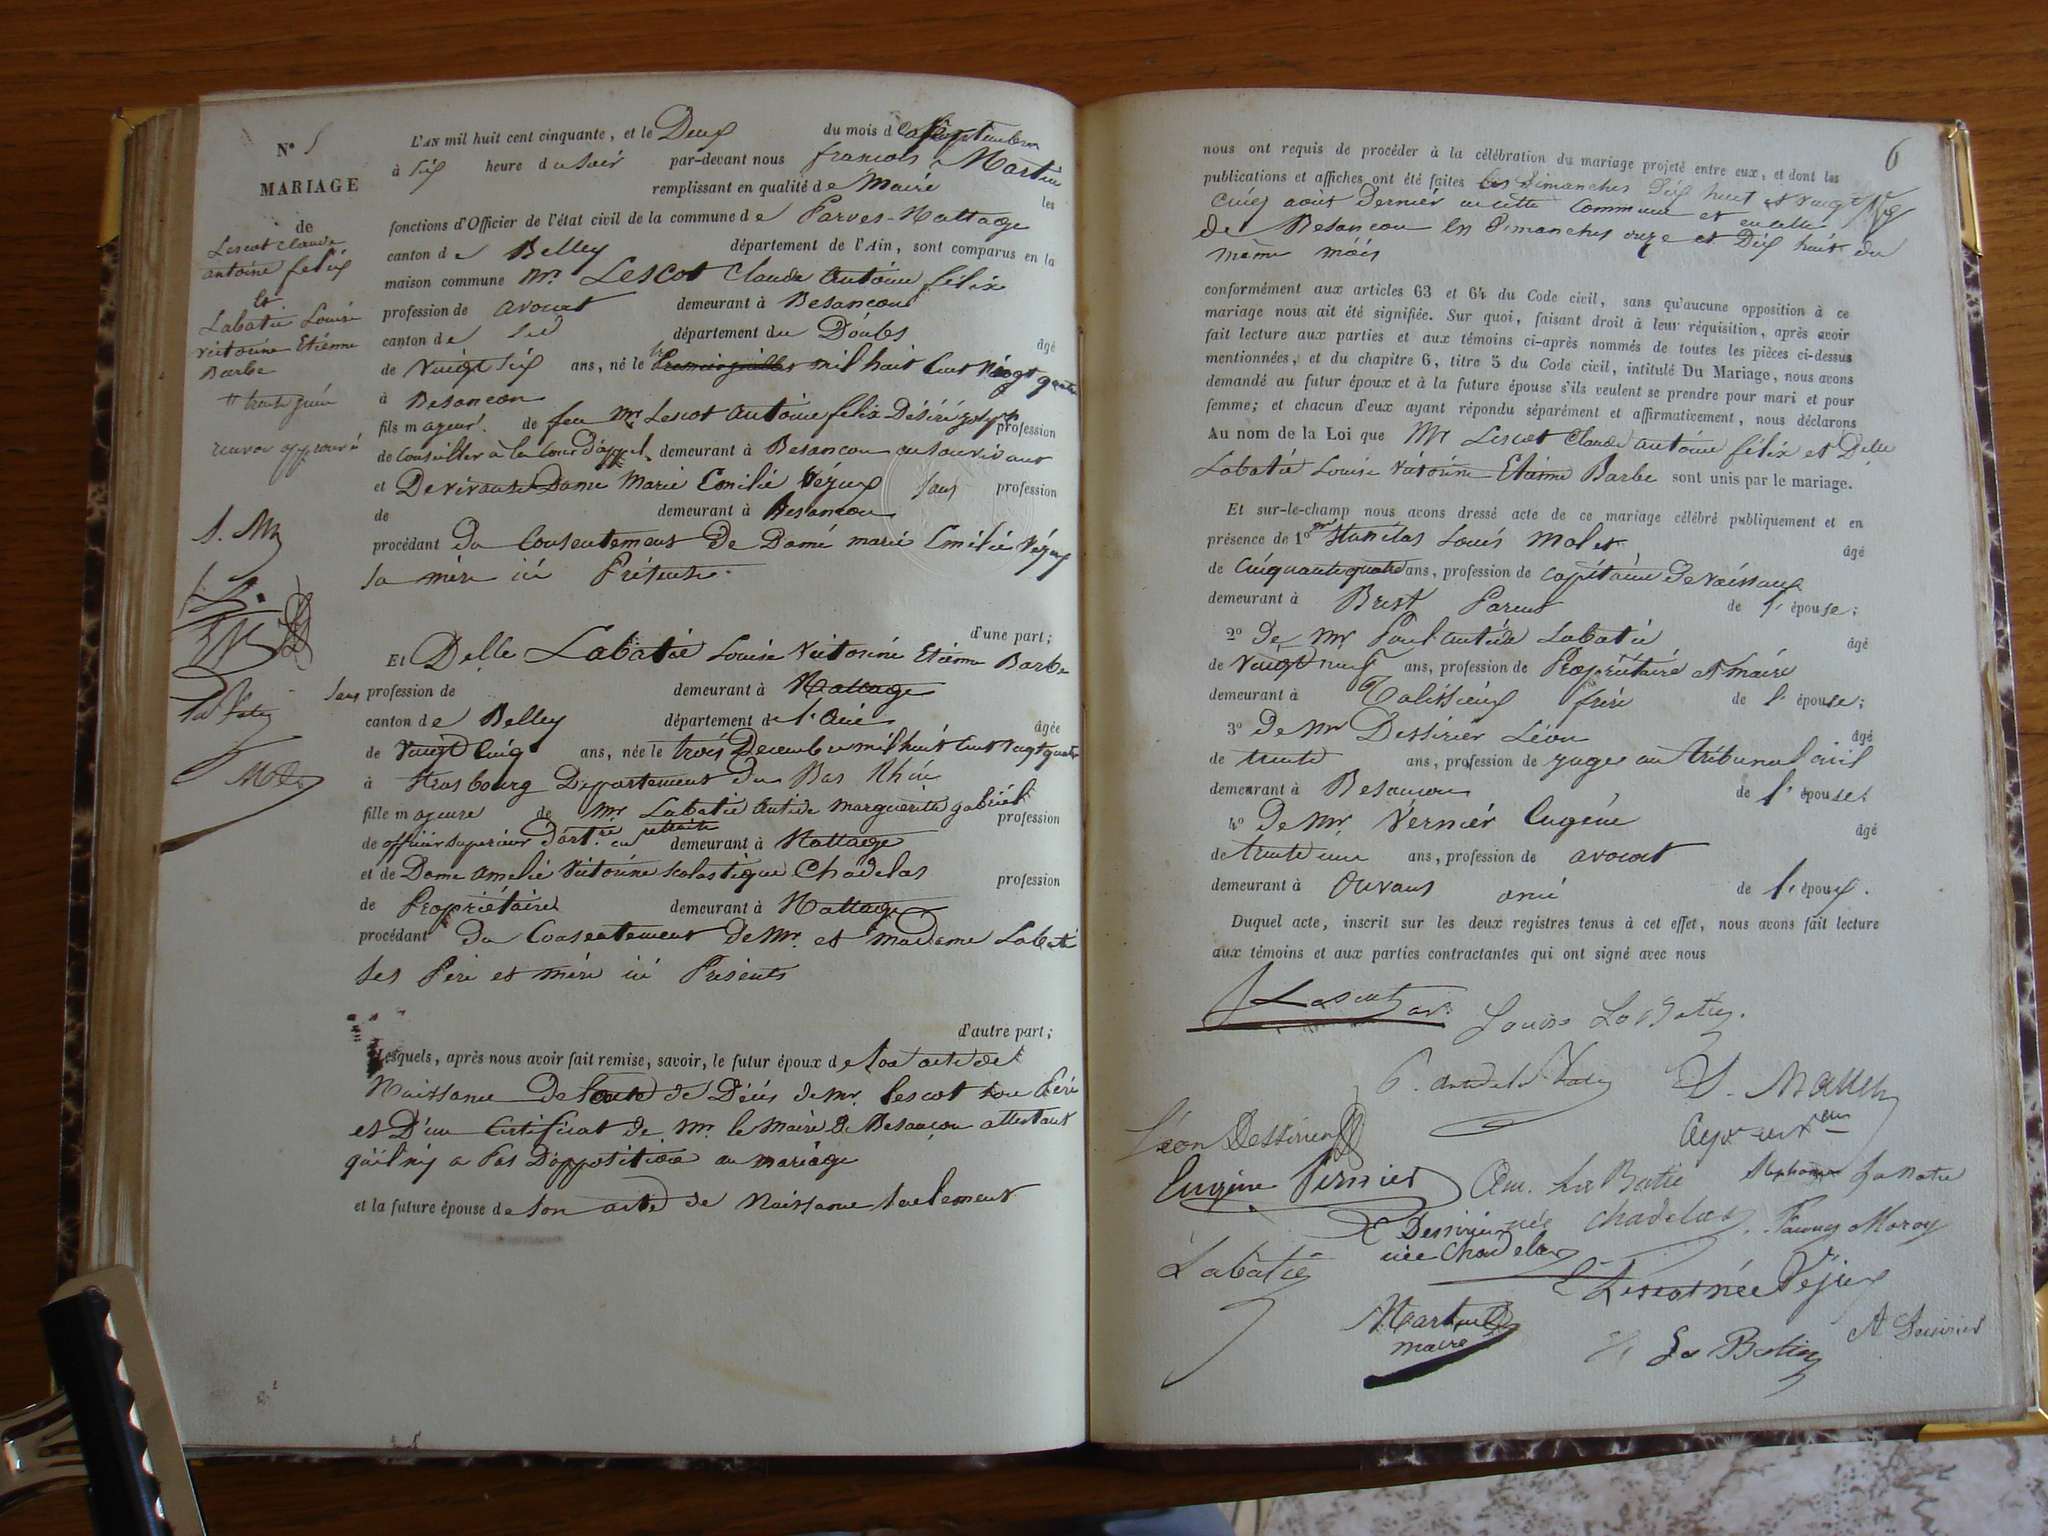 N° 5
MARIAGE
de
Lescot Claude
antoine felix
et
Labatie Louise
victorine Etienne
Barbe
trente juin
renvoi approuvé
L'AN mil huit cent cinquante, et le Deux du mois de Septembre
à six heure du soir par-devant nous francois Martin
remplissant en qualité de Maire les
fonctions d'Officier de l'état civil de la commune de Parves-Nattage
canton de Belley département de l'Ain, sont comparus en la
maison commune Mr. Lescot Claude antoine félix
profession de avocat demeurant à Besançon
canton de département du Doubs
âgé
de vingt six ans, né le mil huit cent vingt quatre
à Besancon
fils majeur de feu Mr Lescot antoine felix Désiré profession
de Conseiller à la Cour d'appel demeurant à Besancon
et De vivante Dame Marie Emilie Véjux sans profession
de demeurant à Besancon
procédant du Consentement de Dame marie Emilie Véjux
sa mère ici Présente.
d'une part;
Et Delle Labatie Louise Victorine Etienne Barbe
sans profession de demeurant à Nattage
canton de Belley département de l'Ain
âgée
de vingt cinq ans, née le trois Decembre mil huit cent vingt quatre
à Strasbourg Departement du Bas Rhin
fille majeure de Mr Labatie antide marguerite gabriel
profession
de officier superieur d'art.rie en retraite demeurant à Nattage
et de Dame amelie Victorine scolastique Chadelas
profession
de Propriétaire demeurant à Nattage
procédant du Consentement de Mr. et madame Labatie
ses Père et mère ici Présents
d'autre part;
Lesquels, après nous avoir fait remise, savoir, le futur époux de son acte de
Naissance de l'acte de Décès de Mr. Lescot son Père
et D'un Certificat de Mr. le Maire de Besançon attestant
qu'il n'y a Pas D'opposition au mariage
et la future épouse de son acte de Naissance seulement
6
nous ont requis de procéder à la célébration du mariage projeté entre eux, et dont les
publications et affiches ont été faites les Dimanches Dix huit et vingt
cinq août Dernier en cette Commune et en celle
de Besancon les Dimanches onze et Dix huit du
même mois
conformément aux articles 63 et 64 du Code civil, sans qu'aucune opposition à ce
mariage nous ait été signifiée. Sur quoi, faisant droit à leur réquisition, après avoir
fait lecture aux parties et aux témoins ci-après nommés de toutes les pièces ci-dessus
mentionnées, et du chapitre 6, titre 5 du Code civil, intitulé Du Mariage, nous avons
demandé au futur époux et à la future épouse s'ils veulent se prendre pour mari et pour
femme; et chacun d'eux ayant répondu séparément et affirmativement, nous déclarons
Au nom de la Loi que Mr Lescot Claude antoine félix et Delle
Labatie Louise Victorine Etienne Barbe sont unis par le mariage.
Et sur-le-champ nous avons dressé acte de ce mariage célébré publiquement et en
présence de 1° mr Stanislas Louis Malet
âgé
de Cinquante quatre ans, profession de capitaine de vaisseau
demeurant à Brest Parent de l'épouse;
2° de Mr Paul antide Labatie
âgé
de vingt neuf ans, profession de Propriétaire et maire
demeurant à Talissieux frère de l'épouse;
3° de Mr Dessirier Léon
âgé
de trente ans, profession de juge au tribunal civil
demeurant à Besancon de l'épouse.
4° de Mr Vernier Eugène
âgé
de trente un ans, profession de avocat
demeurant à Ornans ami de l'époux.
Duquel acte, inscrit sur les deux registres tenus à cet effet, nous avons fait lecture
aux témoins et aux parties contractantes qui ont signé avec nous
Lescot av.
Louise Labatie
Léon Dessirier
Eugène Vernier
Am. La Batie
née Chadelas
Dessirier
née Chadelas
Fanny Moroy
Labatie
E Lescot née Véjux
Martin
maire
La Batie
A Dessirier